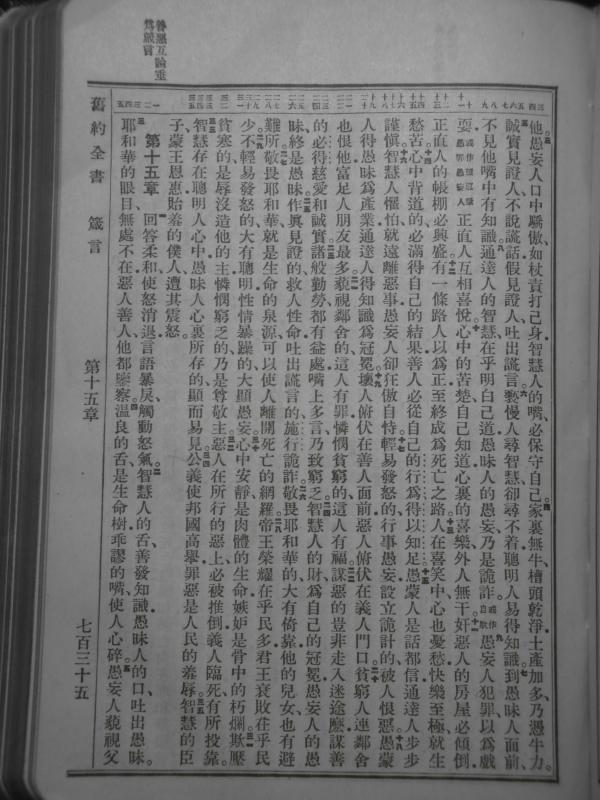 善惡互論垂
爲箴言
他愚妄人口中驕傲如杖責打己身智慧人的嘴必保守自己家裏無牛槽頭乾淨土產加多乃憑牛力
誠實見證人不說謊話假見證人吐出謊言褻慢人尋智慧卻尋不着聰明人易得知識到愚昧人面前
不見他嘴中有知識通達人的智慧在乎明白己道愚昧人的愚妄乃是詭詐或作自欺愚妄人犯罪以爲戲
耍正直人互相喜悅心中的苦楚自己知道心裏的喜樂外人無干奸惡人的房屋必傾倒
正直人的帳棚必興盛有一條路人以爲正至終成爲死亡之路人在喜笑中心也憂愁快樂至極就生
愁苦心中背道的必滿得自己的結果善人必從自己的行爲得以知足愚蒙人是話都信通達人步步
謹愼智慧人懼怕就遠離惡事愚妄人卻狂傲自恃輕易發怒的行事愚妄設立詭計的被人恨惡愚蒙
人得愚昧爲產業通達人得知識爲冠冕壞人俯伏在善人面前惡人俯伏在義人門口貧窮人連鄰舍
也恨他富足人朋友最多藐視鄰舍的這人有罪憐憫貧窮的這人有福謀惡的豈非走入迷途麽謀善
的必得慈愛和誠實諸般勤勞都有益處嘴上多言乃致窮乏智慧人的財爲自己的冠冕愚妄人的愚
昧終是愚昧作眞見證的救人性命吐出謊言的施行詭詐敬畏耶和華的大有倚靠他的兒女也有避
難所敬畏耶和華就是生命的泉源可以使人離開死亡的網羅帝王榮耀在乎民多君王衰敗在乎民
少不輕易發怒的大有聰明性情暴躁的大顯愚妄心中安靜是肉體的生命嫉妒是骨中的朽爛欺壓
貧寒的是辱沒造他的主憐憫窮乏的乃是尊敬主惡人在所行的惡上必被推倒義人臨死有所投靠
智慧存在聰明人心中愚昧人心裏所存的顯而易見公義使邦國高舉罪惡是人民的羞辱智慧的臣
子蒙王恩惠貽羞的僕人遭其震怒
第十五章 回答柔和使怒消退言語暴戾觸動怒氣智慧人的舌善發知識愚昧人的口吐出愚昧
耶和華的眼目無處不在惡人善人他都鑒察溫良的舌是生命樹乖謬的嘴使人心碎愚妄人藐視父
舊約全書 箴言 第十五章 七百三十五